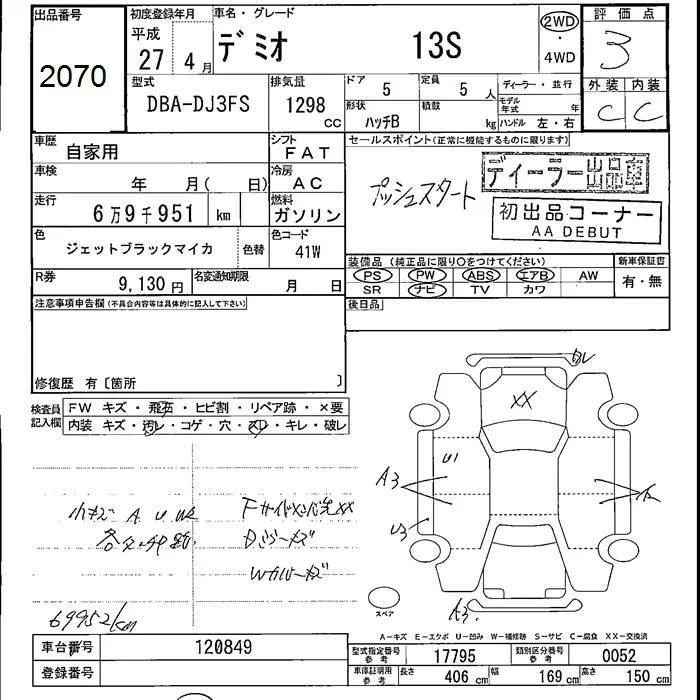 出品番号
2070
初度登録年月
平成
27 4月
車名・グレード
デミオ 13S
2WD
・
4WD
評価点
3
型式
DBA-DJ3FS
排気量
1298 CC
ドア
5
定員
5人
ディーラー・並行
外装 内装
C C
形状
ハッチB
積載
kg
モデル年式 年
ハンドル 左・右
車歴
自家用
シフト
FAT
セールスポイント(正常に機能するものに限ります)
プッシュスタート
ディーラー出品車
初出品コーナー
AA DEBUT
車検
年 月( 日)
冷房
AC
走行
6万9千951 km
燃料
ガソリン
色
ジェットブラックマイカ
色替
色コード
41W
装備品(純正品に限り○をつけてください)
新車保証書
PS PW ABS エアB AW
有・無
SR ナビ TV カワ
R券
9,130円
名変通知期限
月 日
後日品
注意事項申告欄(不具合内容等は具体的に記入して下さい)
修復歴 有〔箇所 〕
検査員記入欄
FW キズ・飛石・ヒビ割・リペア跡・×要
内装 キズ・汚レ・コゲ・穴・スレ・キレ・破レ
XX
U1
A3
U3
A3
小キズ A U W2
69952km
スペア
A-キズ E-エクボ U-凹み W-補修跡 S-サビ C-腐食 XX-交換済
車台番号
120849
登録番号
型式指定番号参考
17795
類別区分番号参考
0052
車庫証明用参考
長さ 406 cm 幅 169 cm 高さ 150 cm